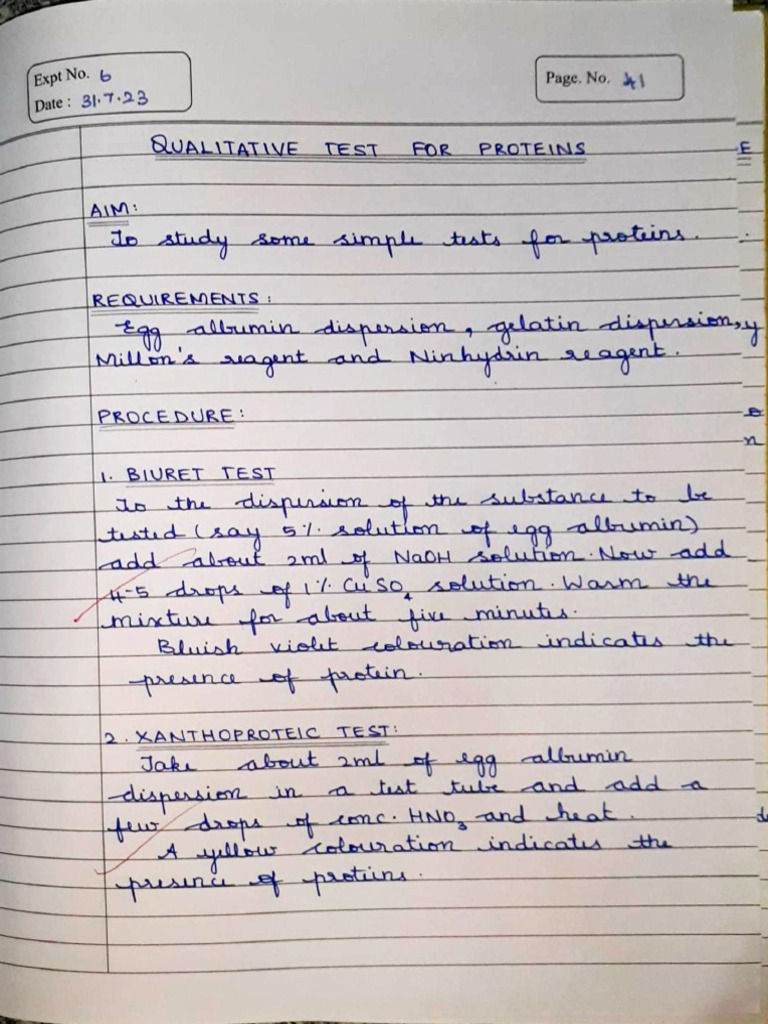 Expt No. 6
Date : 31.7.23
Page. No. 41
QUALITATIVE TEST FOR PROTEINS
AIM:
To study some simple tests for proteins.
REQUIREMENTS :
Egg albumin dispersion, gelatin dispersion,
Millon's reagent and Ninhydrin reagent.
PROCEDURE:
1. BIURET TEST
To the dispersion of the substance to be
tested (say 5% solution of egg albumin)
add about 2ml of NaOH solution. Now add
4-5 drops of 1% CuSO4 solution. Warm the
mixture for about five minutes.
Bluish violet colouration indicates the
presence of protein.
2. XANTHOPROTEIC TEST:
Take about 2ml of egg albumin
dispersion in a test tube and add a
few drops of conc. HNO3 and heat.
A yellow colouration indicates the
presence of proteins.